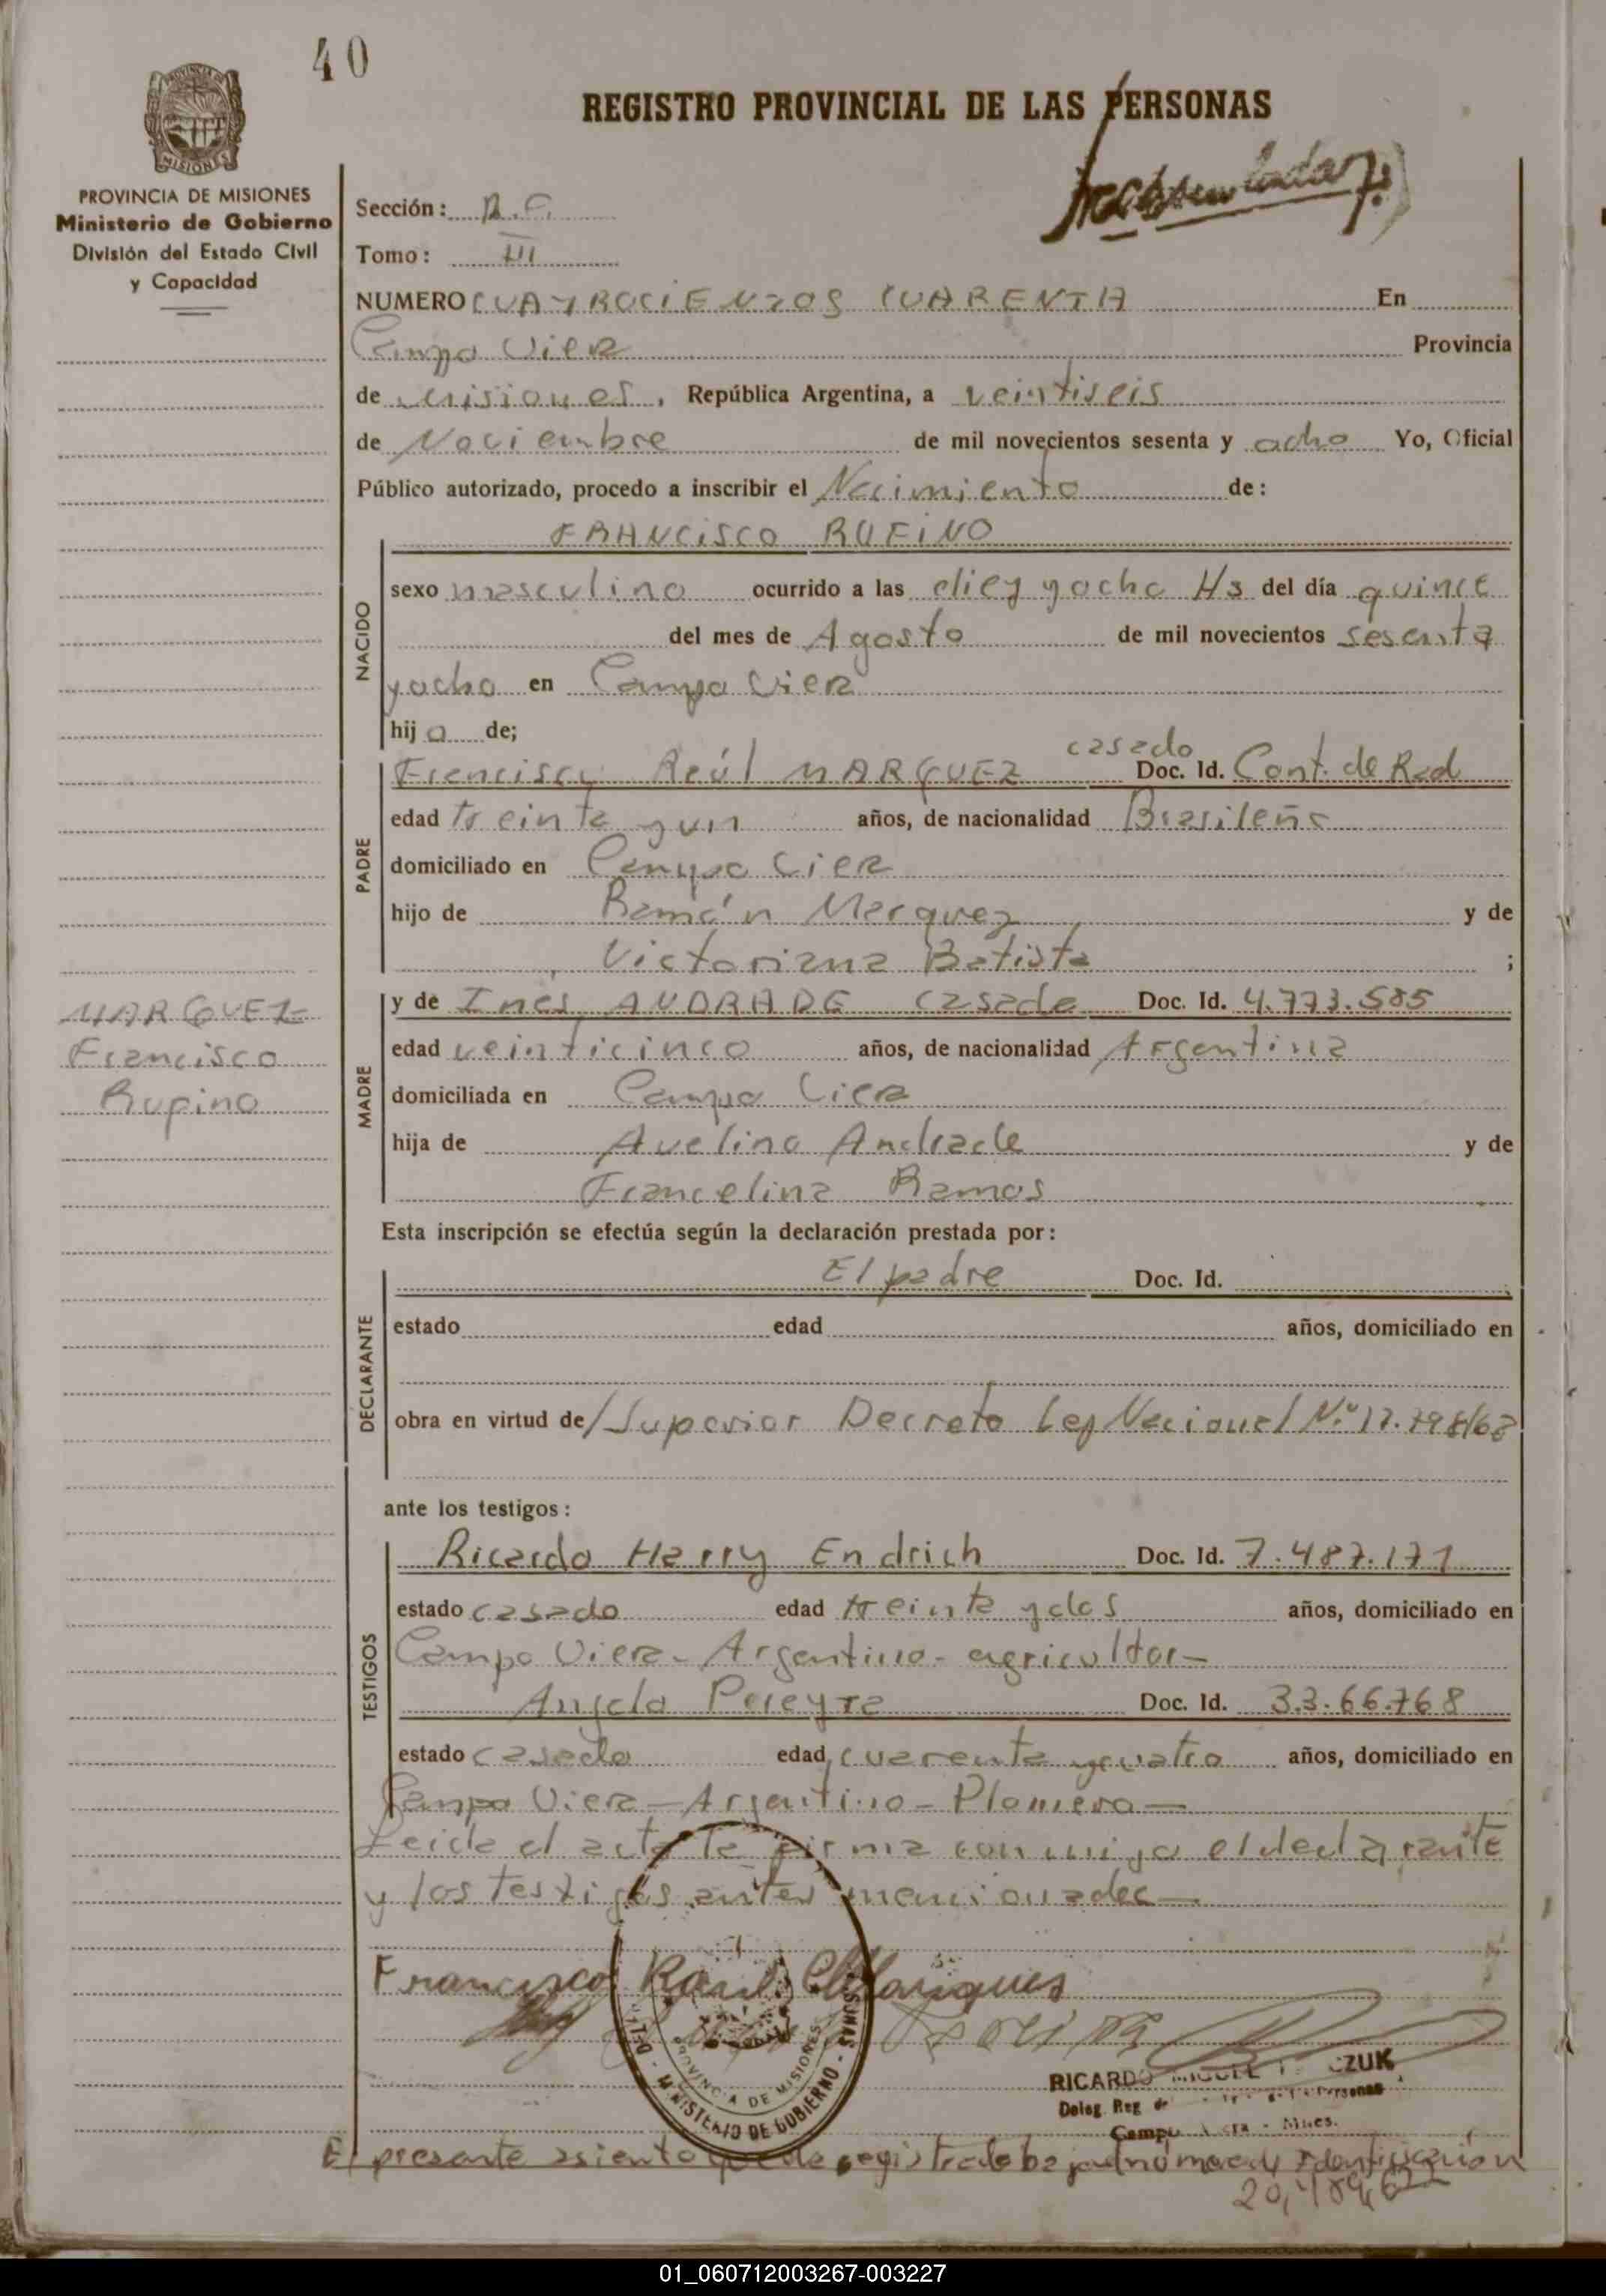 40
REGISTRO PROVINCIAL DE LAS PERSONAS
PROVINCIA DE MISIONES
Ministerio de Gobierno
División del Estado Civil
y Capacidad
Sección:
Tomo: III
NUMERO CUATROCIENTOS CUARENTA En
Campo Viera Provincia
de Misiones, República Argentina, a veintiseis
de Noviembre de mil novecientos sesenta y ocho Yo, Oficial
Público autorizado, procedo a inscribir el Nacimiento de:
FRANCISCO RUFINO
NACIDO
sexo masculino ocurrido a las diez y ocho Hs del día quince
del mes de Agosto de mil novecientos sesenta
y ocho en Campo Viera
hijo de;
casado
Francisco Raúl MARQUEZ Doc. Id. Cont. de Rad
PADRE
edad treinta y un años, de nacionalidad Brasileña
domiciliado en Campo Viera
hijo de Ramón Marquez y de
Victoriana Batista ;
MARQUEZ
Francisco
Rufino
y de Inés ANDRADE casada Doc. Id. 4.773.585
MADRE
edad veinticinco años, de nacionalidad Argentina
domiciliada en Campo Viera
hija de Avelino Andrade y de
Francelina Ramos
Esta inscripción se efectúa según la declaración prestada por:
El padre Doc. Id.
DECLARANTE
estado edad años, domiciliado en
obra en virtud de/Superior Decreto Ley Nacional Nº 17.798/68
ante los testigos:
TESTIGOS
Ricardo Harry Endrich Doc. Id. 7.487.171
estado casado edad treinta y dos años, domiciliado en
Campo Viera - Argentino - agricultor -
Angelo Pereyra Doc. Id. 33.66.768
estado casado edad cuarenta y cuatro años, domiciliado en
Campo Viera - Argentino - Plomero -
Leida el acta la firma conmigo el declarante
y los testigos antes mencionados -
Francisco Raul Marques
RICARDO MIGUEL CZUK
Deleg. Reg de Personas
Campo Viera - Mnes.
MINISTERIO DE GOBIERNO
PROVINCIA DE MISIONES
El presente asiento queda registrado bajo el número de Identificación
20,489,622
01_060712003267-003227